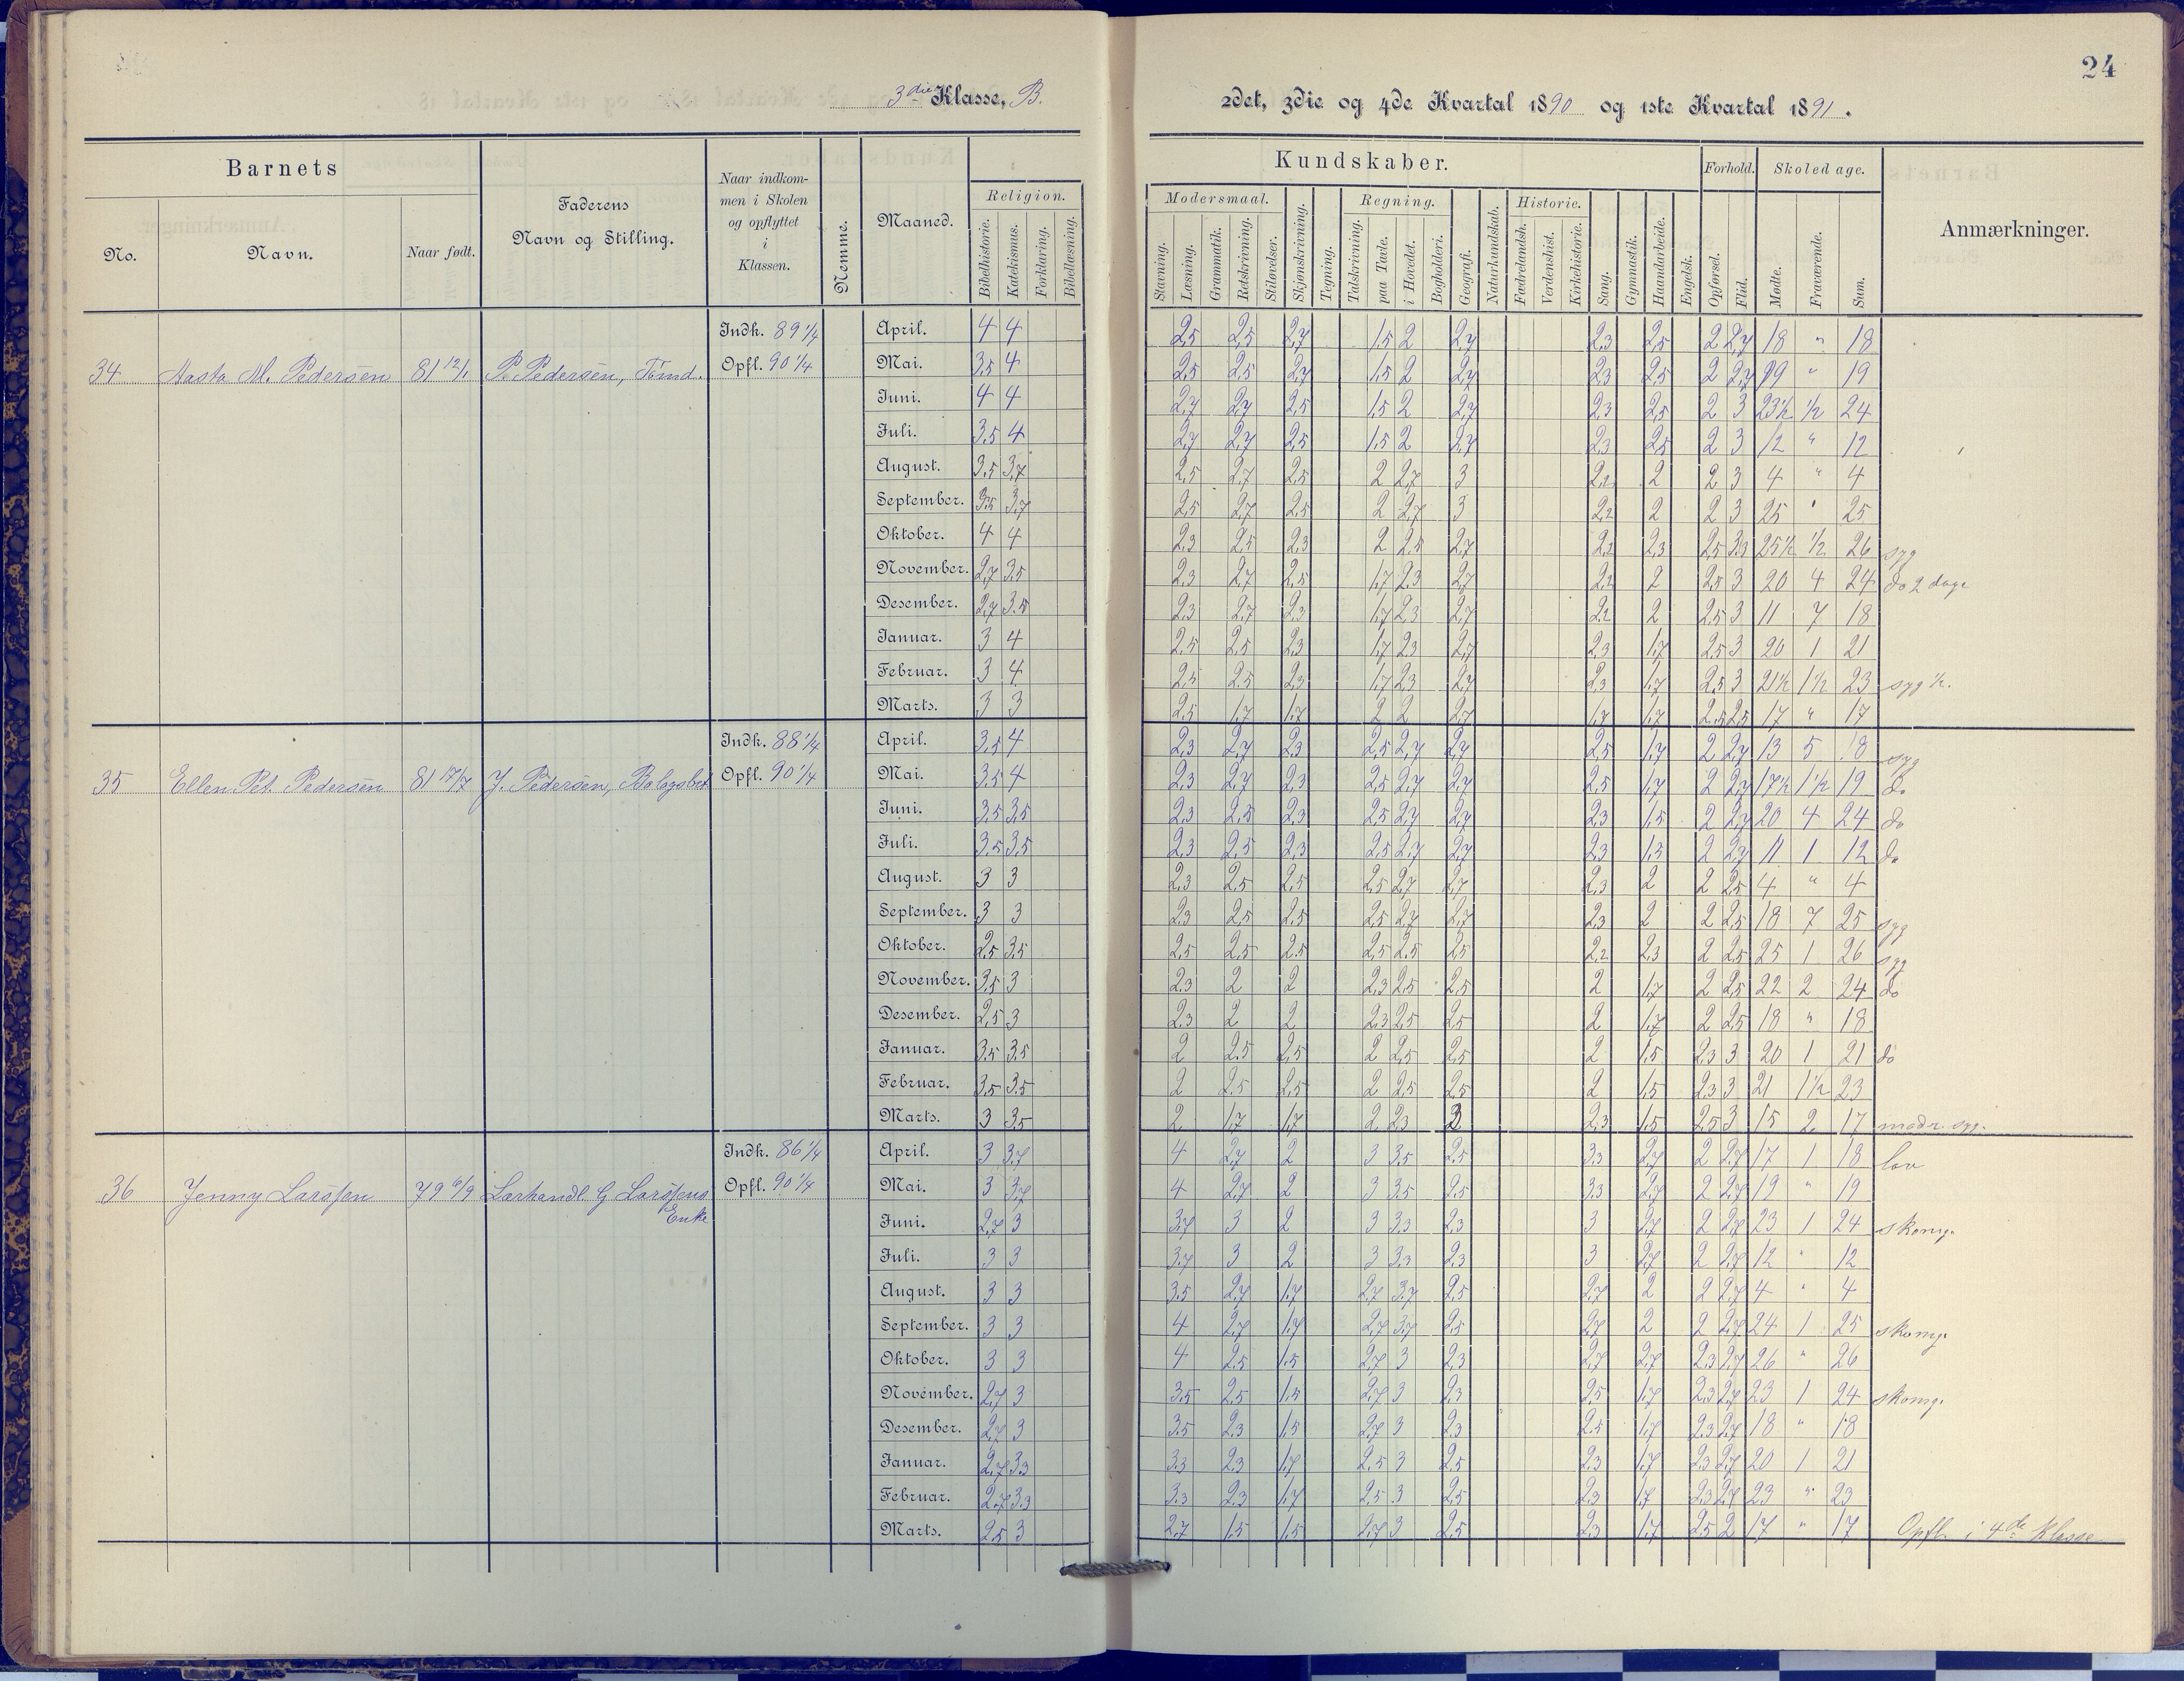 24
3die Klasse, B.
2det, 3die og 4de Kvartal 1890 og 1ste Kvartal 1891.
Barnets
No.
Navn.
Naar født.
Faderens
Navn og Stilling.
Naar indkom-
men i Skolen
og opflyttet
i
Klassen.
Nemme.
Maaned.
Religion.
Bibelhistorie.
Katekismus.
Forklaring.
Bibellæsning.
Kundskaber.
Modersmaal.
Stavning.
Læsning.
Grammatik.
Retskrivning.
Stiløvelser.
Skjønskrivning.
Tegning.
Regning.
Talskrivning.
paa Tavle.
i Hovedet.
Bogholderi.
Geografi.
Naturkundskab.
Historie.
Fædrelandsh.
Verdenshist.
Kirkehistorie.
Sang.
Gymnastik.
Haandarbeide.
Engelsk.
Forhold.
Opførsel.
Flid.
Skoledage.
Møde.
Fraværende.
Sum.
Anmærkninger.
34 Aasta M. Pedersen 81 12/1 P. Pedersen, Tømd. Indk. 89 1/4 Opfl. 90 1/4
April. 4 4 2,5 2,5 2,7 1,5 2 2,7 2,3 2,5 2 2,7 18 " 18
Mai. 3,5 4 2,5 2,5 2,7 1,5 2 2,7 2,3 2,5 2 2,7 19 " 19
Juni. 4 4 2,7 2,7 2,5 1,5 2 2,7 2,3 2,5 2 3 23½ ½ 24
Juli. 3,5 4 2,7 2,7 2,5 1,5 2 2,7 2,3 2,5 2 3 12 " 12
August. 3,5 3,7 2,5 2,7 2,5 2 2,7 3 2,2 2 2 3 4 " 4
September. 3,5 3,7 2,5 2,7 2,5 2 2,7 3 2,2 2 2 3 25 " 25
Oktober. 4 4 2,3 2,5 2,3 2 2,5 2,7 2,2 2,3 2,5 3,3 25½ ½ 26 syg
November. 2,7 3,5 2,3 2,7 2,5 1,7 2,3 2,7 2,2 2 2,5 3 20 4 24 do 2 dage
Desember. 2,7 3,5 2,3 2,7 2,3 1,7 2,3 2,7 2,2 2 2,5 3 11 7 18
Januar. 3 4 2,5 2,5 2,3 1,7 2,3 2,7 2,3 1,7 2,5 3 20 1 21
Februar. 3 4 2,5 2,5 2,3 1,7 2,3 2,7 2,3 1,7 2,5 3 21½ 1½ 23 syg ½.
Marts. 3 3 2,5 1,7 1,7 2 2 2,7 1,7 1,7 2,5 2,5 17 " 17
35 Ellen Pet. Pedersen 81 17/7 J. Pedersen, Indk. 88 1/4 Opfl. 90 1/4
April. 3,5 4 2,3 2,7 2,3 2,5 2,7 2,7 2,5 1,7 2 2,7 13 5 18 syg
Mai. 3,5 4 2,3 2,7 2,3 2,5 2,7 2,7 2,5 1,7 2 2,7 17½ 1½ 19 do
Juni. 3,5 3,5 2,3 2,5 2,3 2,5 2,7 2,7 2,3 1,5 2 2,7 20 4 24 do
Juli. 3,5 3,5 2,3 2,5 2,3 2,5 2,7 2,7 2,3 1,5 2 2,7 11 1 12 do
August. 3 3 2,3 2,5 2,5 2,5 2,7 2,7 2,3 2 2 2,5 4 " 4
September. 3 3 2,3 2,5 2,5 2,5 2,7 2,7 2,3 2 2 2,5 18 7 25 syg
Oktober. 2,5 3,5 2,5 2,5 2,5 2,5 2,5 2,5 2,2 2,3 2 2,5 25 1 26 syg
November. 3,5 3 2,3 2 2 2,3 2,5 2,5 2 1,7 2 2,5 22 2 24 do
Desember. 2,5 3 2,3 2 2 2,3 2,5 2,5 2 1,7 2 2,5 18 " 18
Januar. 3,5 3,5 2 2,5 2,5 2 2,5 2,5 2 1,5 2,3 3 20 1 21 do
Februar. 3,5 3,5 2 2,5 2,5 2 2,5 2,5 2 1,5 2,3 3 21 1½ 23
Marts. 3 3,5 2 1,7 1,7 2 2,3 2 2,3 1,5 2,5 3 15 2 17 modr. syg.
36 Jenny Larssen 79 6/9 Lærhandl. G Larssens Enke Indk. 86 1/4 Opfl. 90 1/4
April. 3 3,7 4 2,7 2 3 3,5 2,5 3,3 2,7 2 2,7 17 1 18 lov
Mai. 3 3,7 4 2,7 2 3 3,5 2,5 3,3 2,7 2 2,7 19 " 19
Juni. 2,7 3 3,7 3 2 3 3,3 2,3 3 2,7 2 2,7 23 1 24 skomg.
Juli. 3 3 3,7 3 2 3 3,3 2,3 3 2,7 2 2,7 12 " 12
August. 3 3 3,5 2,7 1,7 2,7 3,7 2,5 2,7 2 2 2,7 4 " 4
September. 3 3 4 2,7 1,7 2,7 3,7 2,5 2,7 2 2 2,7 24 1 25 skomg.
Oktober. 3 3 4 2,5 1,5 2,7 3 2,3 2,7 2,7 2,3 2,7 26 " 26
November. 2,7 3 3,5 2,5 1,5 2,7 3 2,3 2,5 1,7 2,3 2,7 23 1 24 skomg.
Desember. 2,7 3 3,5 2,3 1,5 2,7 3 2,3 2,5 1,7 2,3 2,7 18 " 18
Januar. 2,7 3,3 3,3 2,3 1,7 2,5 3 2,5 2,3 1,7 2,3 2,7 20 1 21
Februar. 2,7 3,3 3,3 2,3 1,7 2,5 3 2,5 2,3 1,7 2,3 2,7 23 " 23
Marts. 2,5 3 2,7 1,5 1,5 2,7 3 2,5 2,3 1,7 2,5 2 17 " 17 Opfl. i 4de Klasse